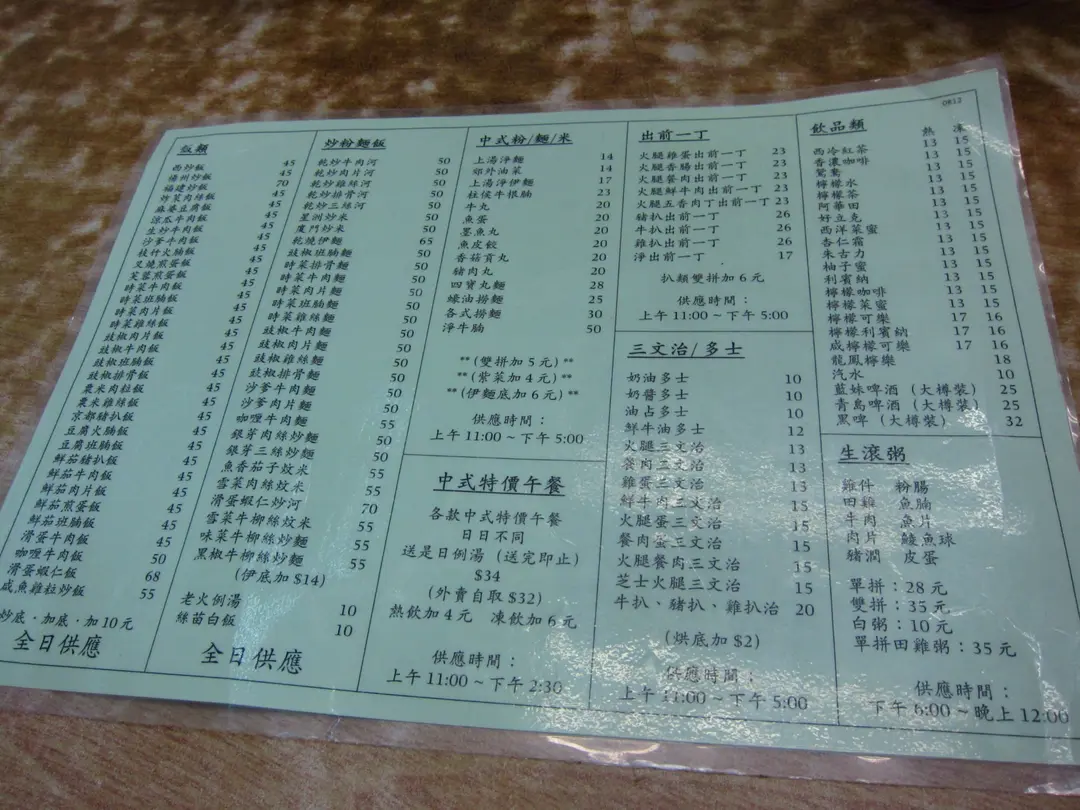 0812
飯類
西炒飯 45
楊州炒飯 45
福建炒飯 70
炸菜肉絲飯 45
麻婆豆腐飯 45
涼瓜牛肉飯 45
生炒牛肉飯 45
沙爹牛肉飯 45
枝竹火腩飯 45
叉燒煎蛋飯 45
芙蓉煎蛋飯 45
時菜牛肉飯 45
時菜班腩飯 45
時菜肉片飯 45
時菜雞絲飯 45
豉椒肉片飯 45
豉椒牛肉飯 45
豉椒班腩飯 45
豉椒排骨飯 45
粟米肉粒飯 45
粟米雞絲飯 45
京都豬扒飯 45
豆腐火腩飯 45
豆腐班腩飯 45
鮮茄豬扒飯 45
鮮茄牛肉飯 45
鮮茄肉片飯 45
鮮茄煎蛋飯 45
鮮茄班腩飯 45
滑蛋牛肉飯 45
咖喱牛肉飯 50
滑蛋蝦仁飯 68
咸魚雞粒炒飯 55
炒底・加底・加10元
全日供應
炒粉麵飯
乾炒牛肉河 50
乾炒肉片河 50
乾炒雞絲河 50
乾炒排骨河 50
乾炒三絲河 50
星洲炒米 50
廈門炒米 50
乾燒伊麵 65
豉椒班腩麵 50
時菜排骨麵 50
時菜牛肉麵 50
時菜肉片麵 50
時菜班腩麵 50
時菜雞絲麵 50
豉椒牛肉麵 50
豉椒肉片麵 50
豉椒雞絲麵 50
豉椒排骨麵 50
沙爹牛肉麵 50
沙爹肉片麵 50
咖喱牛肉麵 55
銀芽肉絲炒麵 50
銀芽三絲炒麵 50
魚香茄子炆米 55
雪菜肉絲炆米 55
滑蛋蝦仁炒河 70
雪菜牛柳絲炆米 55
味菜牛柳絲炒麵 55
黑椒牛柳絲炒麵 55
(伊底加 $14)
老火例湯 10
絲苗白飯 10
全日供應
中式粉/麵/米
上湯淨麵 14
郊外油菜 14
上湯淨伊麵 17
柱侯牛根腩 23
牛丸 20
魚蛋 20
墨魚丸 20
魚皮餃 20
香菇貢丸 20
豬肉丸 20
四寶丸麵 28
蠔油撈麵 25
各式撈麵 30
淨牛腩 50
**(雙拼加 5 元)**
**(紫菜加 4 元)**
**(伊麵底加 6 元)**
供應時間：
上午 11:00 ~ 下午 5:00
中式特價午餐
各款中式特價午餐
日日不同
送是日例湯 (送完即止)
$34
(外賣自取 $32)
熱飲加 4 元 凍飲加 6 元
供應時間：
上午 11:00 ~ 下午 2:30
出前一丁
火腿雞蛋出前一丁 23
火腿香腸出前一丁 23
火腿餐肉出前一丁 23
火腿鮮牛肉出前一丁 23
火腿五香肉丁出前一丁 23
豬扒出前一丁 26
牛扒出前一丁 26
雞扒出前一丁 26
淨出前一丁 17
扒類雙拼加 6 元
供應時間：
上午 11:00 ~ 下午 5:00
三文治/多士
奶油多士 10
奶醬多士 10
油占多士 10
鮮牛油多士 12
火腿三文治 13
餐肉三文治 13
雞蛋三文治 13
鮮牛肉三文治 15
火腿蛋三文治 15
餐肉蛋三文治 15
火腿餐肉三文治 15
芝士火腿三文治 15
牛扒、豬扒、雞扒治 20
(烘底加 $2)
供應時間：
上午 11:00 ~ 下午 5:00
飲品類
熱 凍
西冷紅茶 13 15
香濃咖啡 13 15
鴛鴦 13 15
檸檬水 13 15
檸檬茶 13 15
阿華田 13 15
好立克 13 15
西洋菜蜜 13 15
杏仁霜 13 15
朱古力 13 15
柚子蜜 13 15
利賓納 13 15
檸檬咖啡 13 15
檸檬菜蜜 13 15
檸檬可樂 17 16
檸檬利賓納 17 16
咸檸檬可樂 17 16
龍鳳檸樂 18
汽水 10
藍妹啤酒 (大樽裝) 25
青島啤酒 (大樽裝) 25
黑啤 (大樽裝) 32
生滾粥
雞件 粉腸
田雞 魚腩
牛肉 魚片
肉片 鯪魚球
豬潤 皮蛋
單拼：28 元
雙拼：35 元
白粥：10 元
單拼田雞粥：35 元
供應時間：
下午 6:00 ~ 晚上 12:00